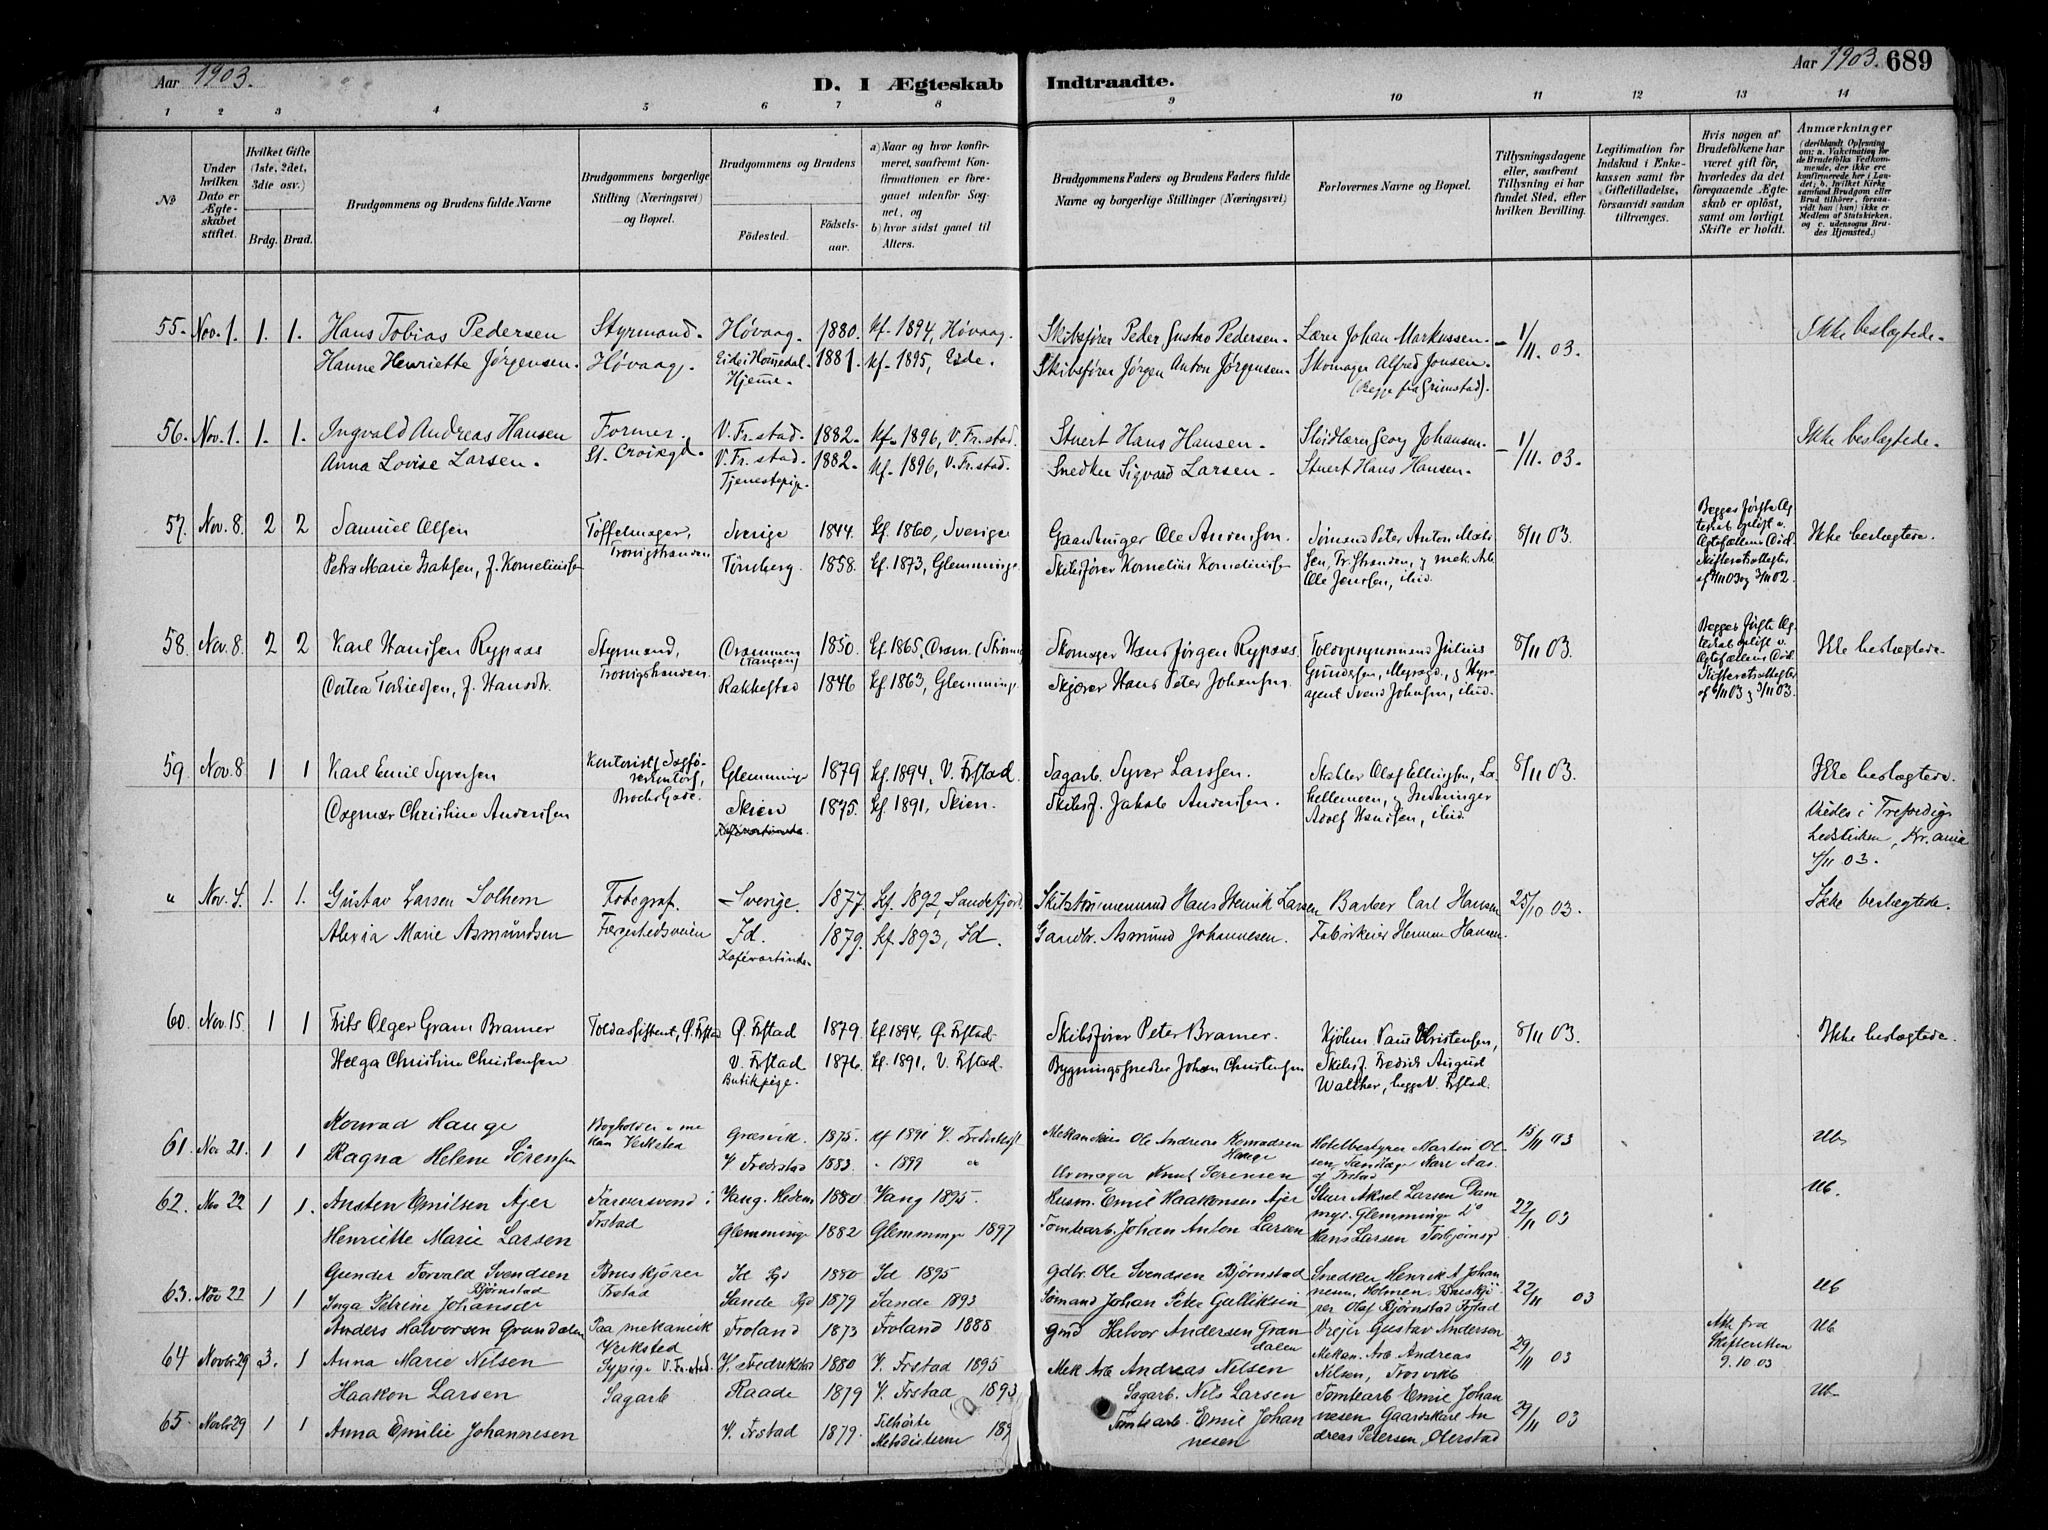 Aar 1903.
D. I Ægteskab Indtraadte.
Aar 1903. 689
1 2 3 4 5 6 7 8 9 10 11 12 13 14
No
Under hvilken Dato er Ægteskabet stiftet.
Hvilket Gifte (1ste, 2det, 3die osv.)
Brdg. Brud.
Brudgommens og Brudens fulde Navne
Brudgommens borgerlige Stilling (Næringsvei) og Bopæl.
Brudgommens og Brudens
Födested. Födselsaar.
a) Naar og hvor konfirmeret, saafremt Konfirmationen er foregaaet udenfor Sognet, og
b) hvor sidst gaaet til Alters.
Brudgommens Faders og Brudens Faders fulde Navne og borgerlige Stillinger (Næringsvei)
Forlovernes Navne og Bopæl.
Tillysningsdagene eller, saafremt Tillysning ei har fundet Sted, efter hvilken Bevilling.
Legitimation for Indskud i Enkekassen samt for Giftetilladelse, forsaavidt saadan tiltrænges.
Hvis nogen af Brudefolkene har været gift för, hvorledes da det foregaaende Ægteskab er oplöst, samt om lovligt Skifte er holdt.
Anmærkninger (deriblandt Oplysning om: a. Vakcination for de Brudefolks Vedkommende, der ikke ere konfirmerede her i Landet; b. hvilket Kirkesamfund Brudgom eller Brud tilhörer, forsaavidt han (hun) ikke er Medlem af Statskirken, og c. udensogns Brudes Hjemsted.)
55. Nov. 1. 1. 1. Hans Tobias Pedersen Styrmand. Høvaag. 1880. kf. 1894, Høvaag. Skibsfører Peder Gustav Pedersen. Lærer Johan Markussen. 1/11. 03. Ikke beslægtede.
Hanne Henriette Jørgensen. Høvaag. Eide i Homedal 1881. kf. 1895, Eide. Skibsfører Jørgen Anton Jørgensen. Skomager Alfred Jensen.
Hjeme. (Begge fra Grimstad).
56. Nov. 1. 1. 1. Ingvald Andreas Hansen Former. V. Fr.stad. 1882. kf. 1896, V. Fr.stad. Stuert Hans Hansen. Sløidlærer Georg Johansen. 1/11. 03. Ikke beslægtede.
Anna Lovise Larsen. St. Croixgd. V. Fr.stad. 1882. kf. 1896, V. Fr.stad. Snedker Sigvard Larsen. Stuert Hans Hansen.
Tjenestepige.
57. Nov. 8. 2 2 Samuel Olsen Tøffelmager, Sverige 1844. kf. 1860, Sverige Ole Andersson. Sømand Peter Anton 8/11 03. Ikke beslægtede.
Petra Marie Isaksen, f. Korneliussen Trosvigstranden Tønsberg. 1858. kf. 1873, Glemminge. Skibsfører Kornelius Korneliussen Fr.stranden, og mek. Arb.
Ole Jensen, ibid.
Begges første Ægteskab opløst v. Ægtefællens Død. Skifteretsattester af 4/11 03 og 3/11 02.
58. Nov. 8. 2 2 Karl Hansen Rypaas Styrmand, Drammen (Tangen) 1850. kf. 1865, Dram. Skomager Hans Jørgen Rypaas Toldopsynsmand Julius 8/11 03. Ikke beslægtede.
f. Hansdtr. Trosvigstranden. Rakkestad 1846 kf. 1863, Glemminge. Skjærer Hans Peter Johansen. Gundersen, og
agent Svend Johnsen, ibid.
Begges første Ægteskab opløst v. Ægtefællens Død. Skifteretsattester af 4/11 03 og 3/11 03.
59. Nov. 8. 1 1 Karl Emil Syversen Kontorist, Glemminge 1879 kf. 1894, V. Frstad. Sagarb. Syver Larssen. Stabler Olaf Ellingsen, 8/11 03. Ikke beslægtede.
Dagmar Christine Anderssen Skien 1875. kf. 1891, Skien. Skibsf. Jakob Anderssen. Adolf Hansen, ibid.
Viedes i Trefoldigheds kirken, Kr.ania 4/11 03.
" Nov. 4. 1. 1. Gustav Larsen Solhem Fotograf. Sverige. 1877. Kf. 1892, Sandefjord. Skibstømmermand Hans Henrik Larsen Barber Carl Hansen 25/10 03. Ikke beslægtede.
Alexia Marie Asmundsen Færgestedsveien Id. 1879. Kf. 1893, Id. Gaardbr. Asmund Johannesen. Fabrikeier Herman Hansen.
Kafévartinde.
60. Nov. 15. 1 1 Frits Olger Gram Bramer Toldassistent, Ø. Frstad Ø. Frstad 1879 kf. 1894, Ø. Frstad. Skibsfører Peter Bramer. Christensen, 8/11 03. Ikke beslægtede.
Helga Christine Christensen V. Frstad 1876. kf. 1891, V. Frstad. Bygningssnedker Johan Christensen Skibsf. Fredrik August
Butikpige. Walther, begge V. Frstad.
61. Nov 21. 1 1 Konrad Hauge Bogholder Græsvik. 1875. kf 1891 V. Ole Andreas Konradsen Hauge Hotelbestyrer Martin Olsen 15/11 03 Ub
Ragna Helene Sørensen Verksted V. Fredrstad 1883. " 1899 " Urmager Knut Sørensen
62. Nov 22 1 1. Austen Emilsen Ajer Farversvend i Frstad Vang. Hedem. 1880. Vang 1895. Husm. Emil Haakonsen Ajer Stuer Aksel Larsen 22/11 03 Ub.
Henriette Marie Larsen Glemminge 1882 Glemminge 1897 Tomtearb. Johan Anton Larsen Hans Larsen
63. Nov 22 1 1 Gunder Torvald Svendsen Bjørnstad Bruskjører Frstad Id 1880 Id 1895 gdbr. Ole Svendsen Bjørnstad Snedker Henrik A Johannesen, Holmen. 22/11 03 Ub
Inga Petrine Johansdr Sande 1879 Sande 1893 Sømand Johan Peter Gulliksen Olaf Bjørnstad Frstad
64 Novbr 29 3. 1 Anders Halvorsen Grandalen Paa mekanisk Verksted Froland 1873 Froland 1888 Gmd Halvor Andersen Grandalen Drejer Gustav Andersen 29/11 03 Att fra Skifteretten 9.10 03 Ub
Anna Marie Nilsen Sypige V. Fr.stad. V. Fredrikstad 1880 V. Frstad 1895 Mek Arb Andreas Nilsen Mekan. Arb Andreas Nilsen, Trosvik
65. Novbr 29 1 1 Haakon Larsen Sagarb Raade 1879 V. Frstad 1893 Sagarb. Nils Larsen Tomtearb Emil Johannesen 29/11 03 Ub
Anna Emilie Johannesen V. Frstad 1879. Tilhørte Metodisterne Tomtearb. Emil Johannesen Gaardskarl Andreas Petersen,